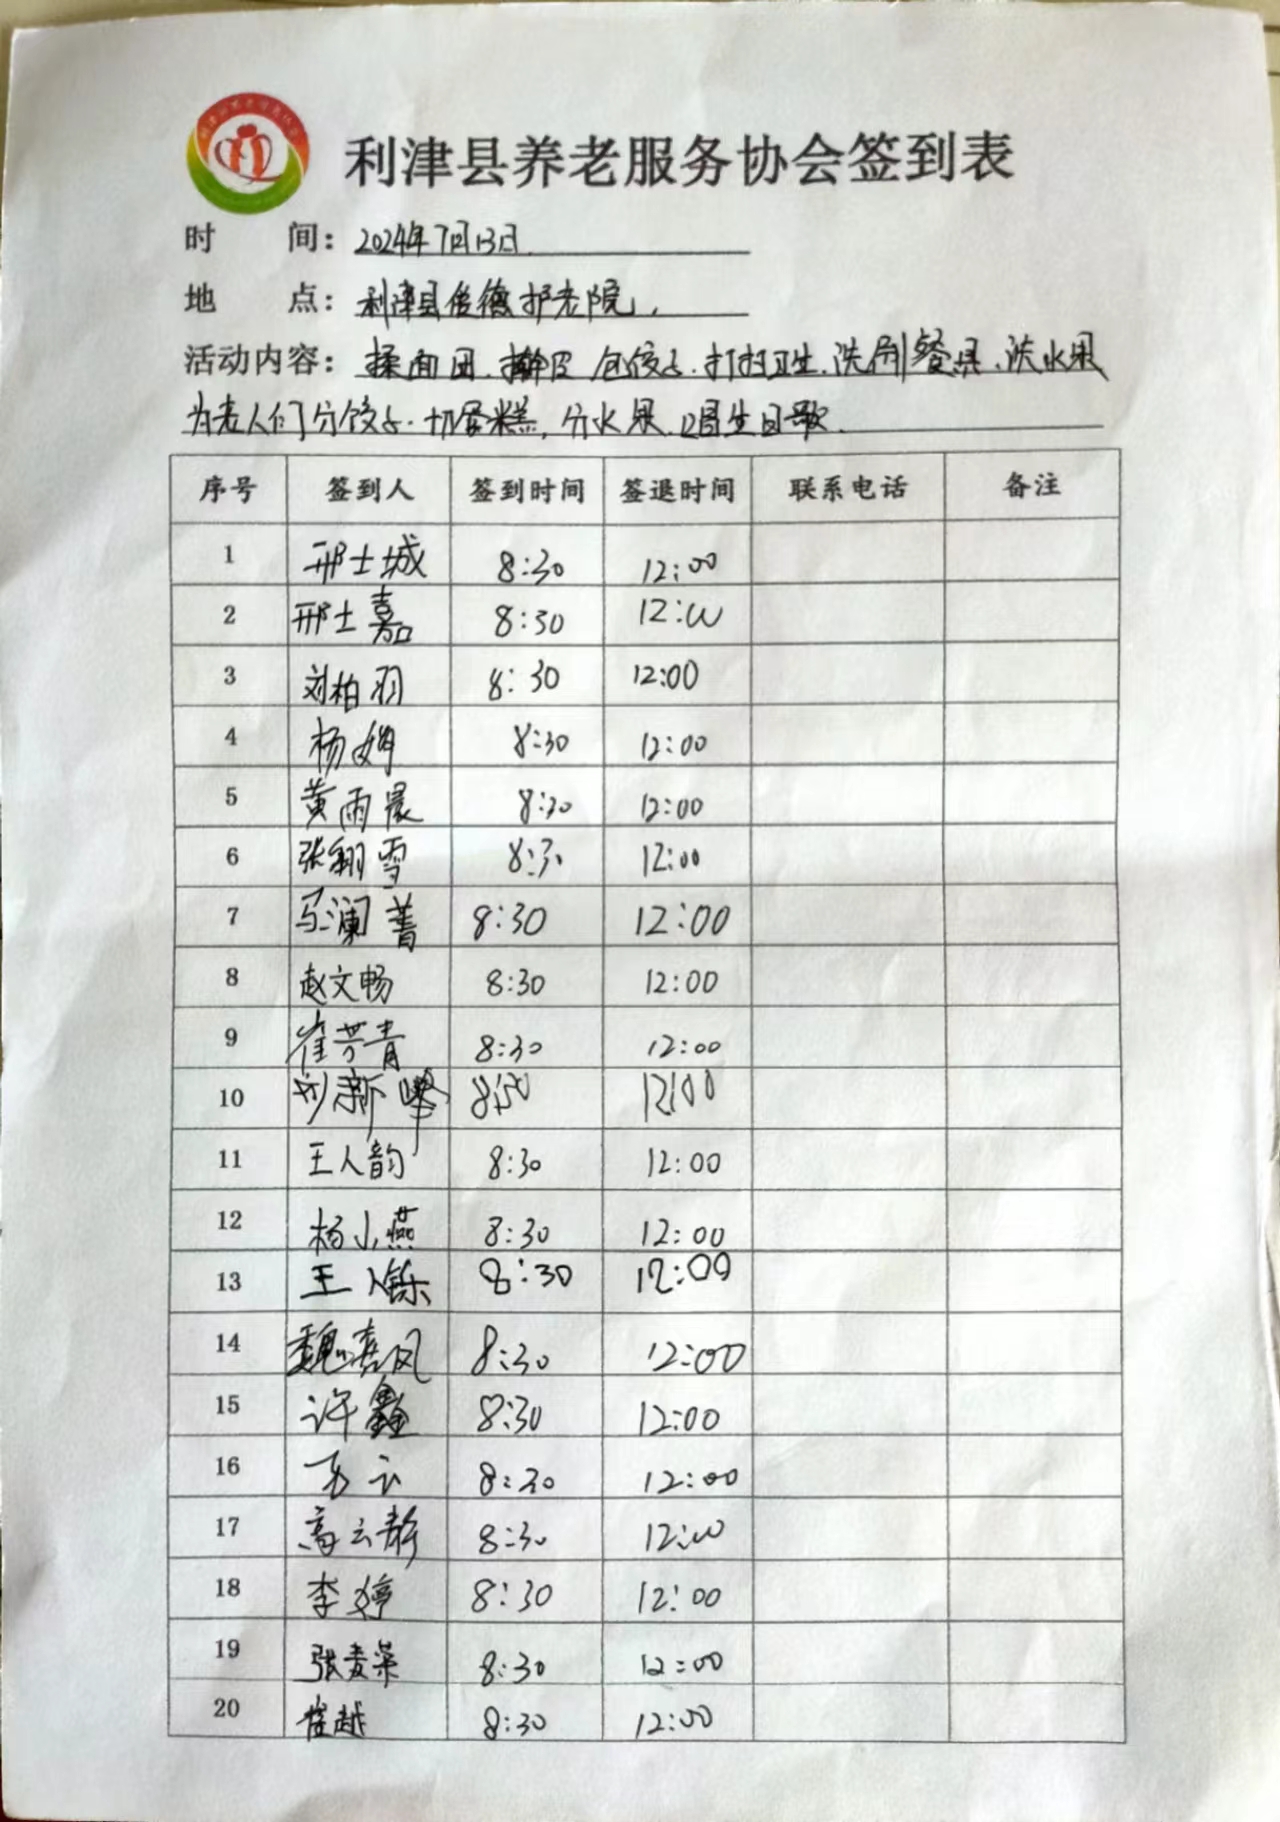 利津县养老服务协会签到表
时 间：2024年7月13日
地 点：利津县俊德护老院，
活动内容：揉面团、擀皮 包饺子、打扫卫生、洗刷餐具、洗水果
为老人们分饺子、切蛋糕，分水果、唱生日歌.
序号 签到人 签到时间 签退时间 联系电话 备注
1 邢士城 8:30 12:00
2 邢士嘉 8:30 12:00
3 刘柏羽 8:30 12:00
4 杨娟 8:30 12:00
5 黄雨晨 8:30 12:00
6 张翱雪 8:30 12:00
7 马澜菁 8:30 12:00
8 赵文畅 8:30 12:00
9 崔芳青 8:30 12:00
10 刘新 8:30 12:00
11 王人韵 8:30 12:00
12 杨小燕 8:30 12:00
13 王人铄 8:30 12:00
14 魏喜凤 8:30 12:00
15 许鑫 8:30 12:00
16 8:30 12:00
17 高云静 8:30 12:00
18 李婷 8:30 12:00
19 张麦菜 8:30 12:00
20 崔越 8:30 12:00